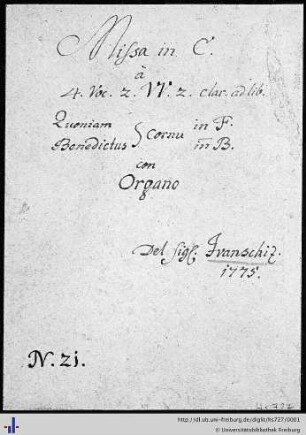 Missa in C.
à
4. Voc. 2. VV. 2. Clar. ad lib.
Quoniam } Cornu in F.
Benedictus in B.
con
Organo
Del Sigl. Ivanschiz.
1775.
N. 21.
Hs 727
http://dl.ub.uni-freiburg.de/diglit/hs727/0001
© Universitätsbibliothek Freiburg